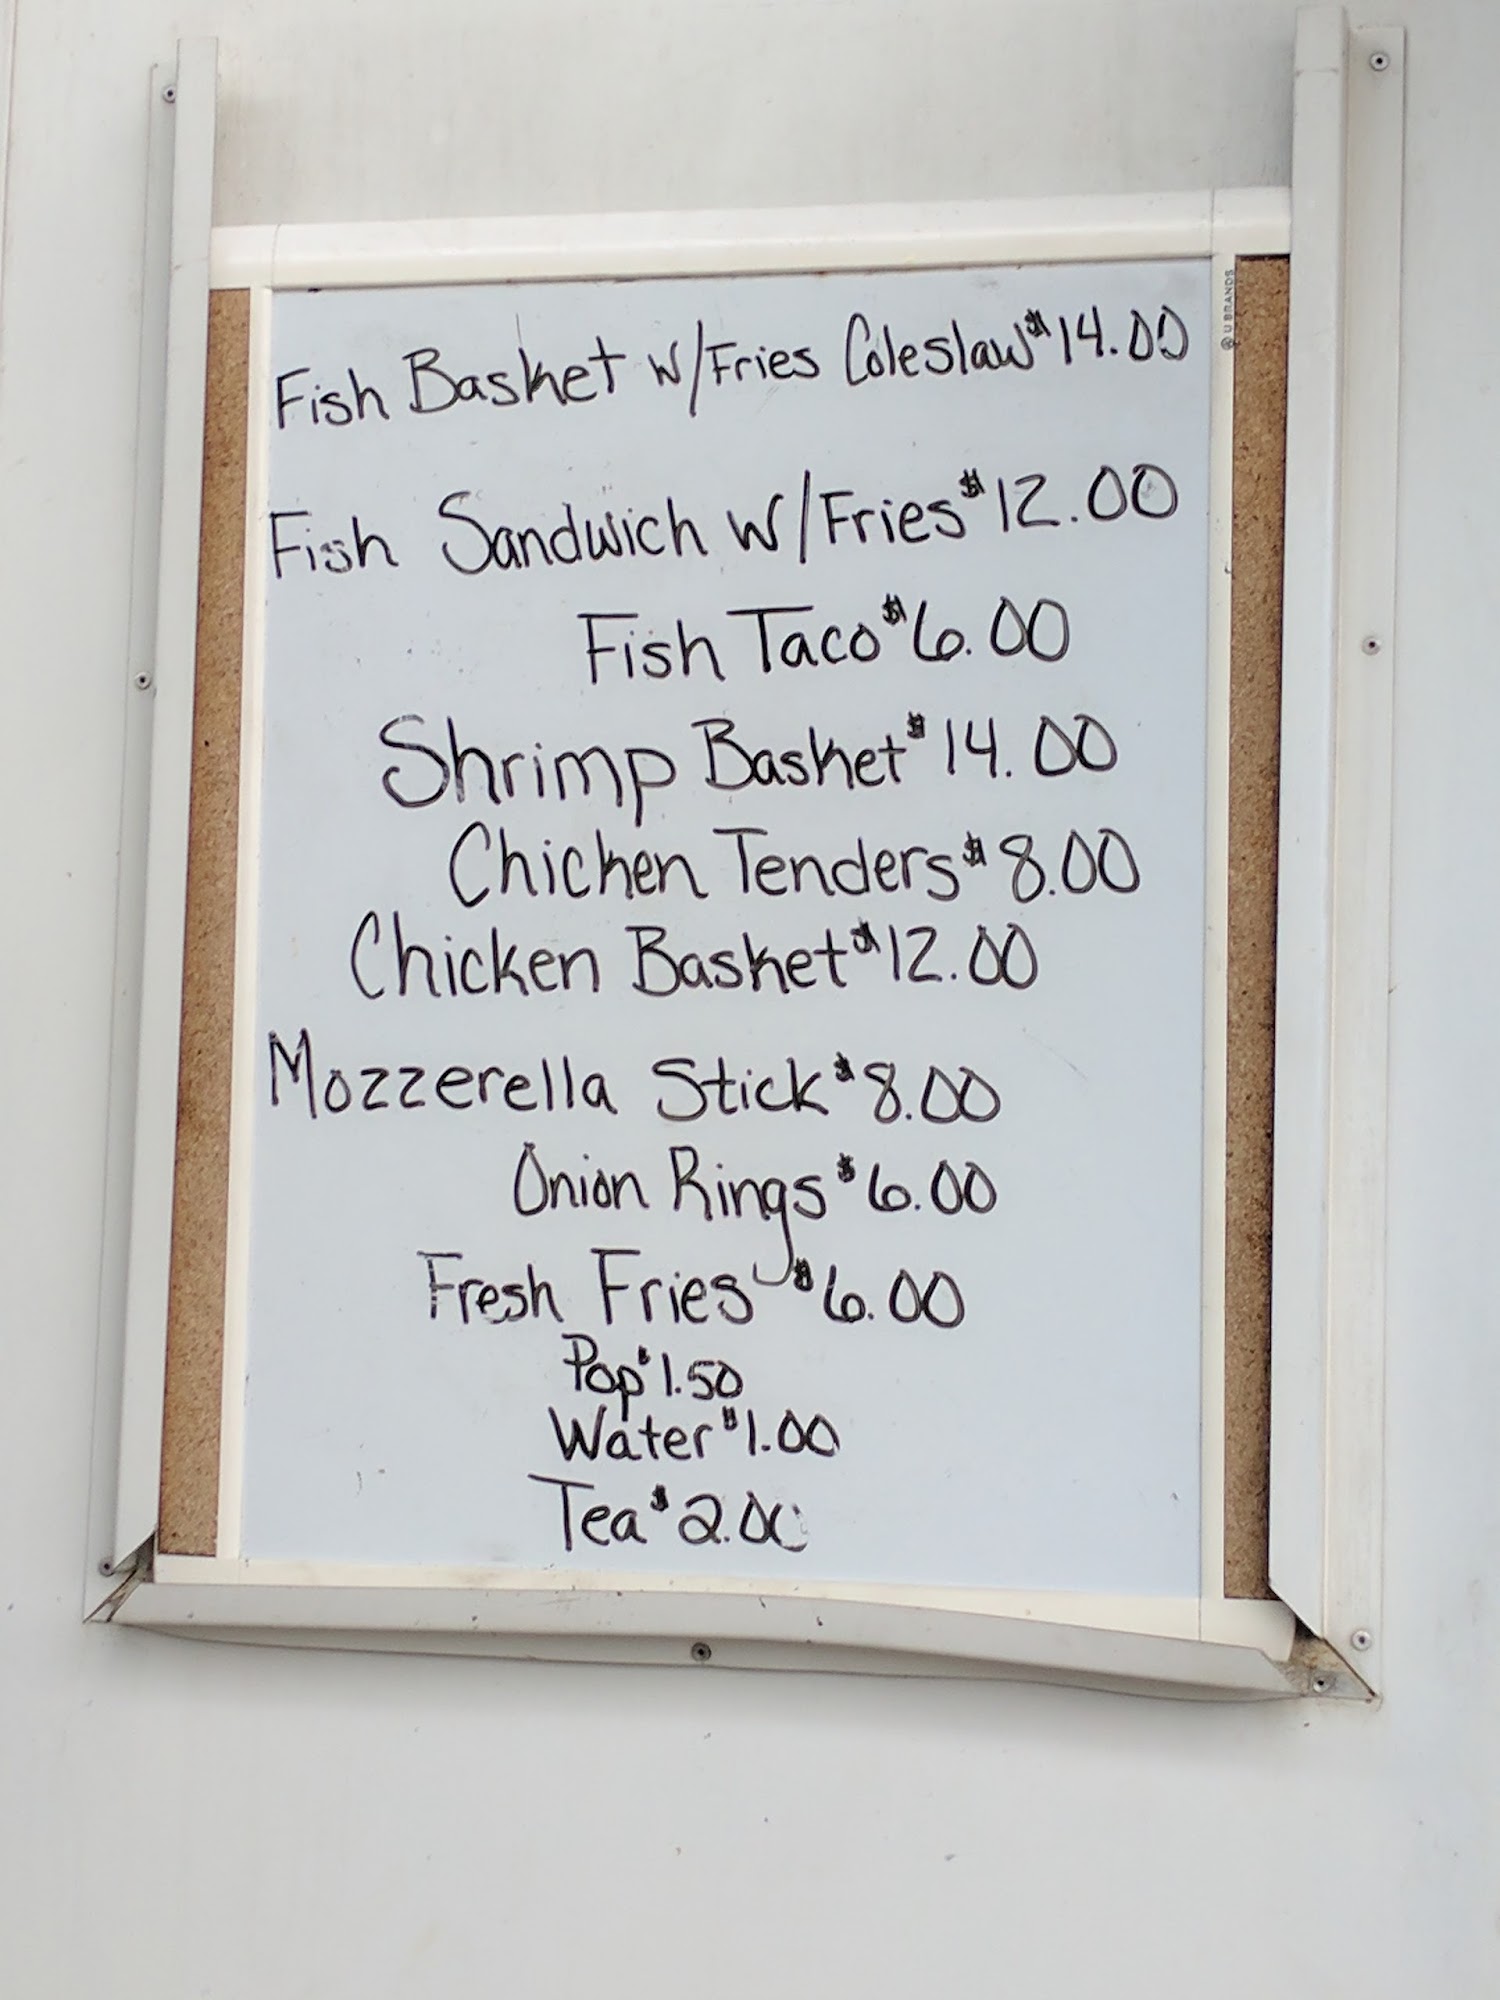 Fish Basket w/Fries Coleslaw $14.00
Fish Sandwich w/Fries $12.00
Fish Taco $6.00
Shrimp Basket $14.00
Chicken Tenders $8.00
Chicken Basket $12.00
Mozzerella Stick $8.00
Onion Rings $6.00
Fresh Fries $6.00
Pop $1.50
Water $1.00
Tea $2.00
U BRANDS